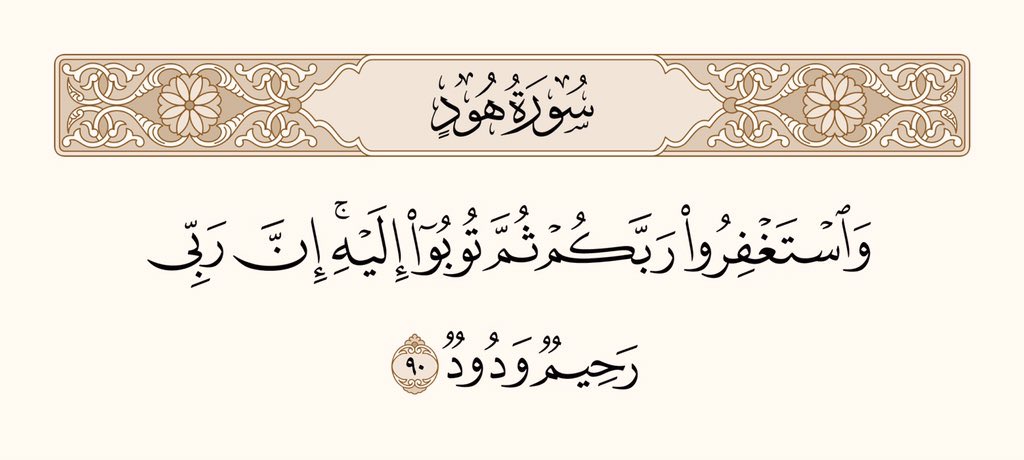 سُورَةُ هُودٍ
وَٱسْتَغْفِرُوا۟ رَبَّكُمْ ثُمَّ تُوبُوٓا۟ إِلَيْهِ ۚ إِنَّ رَبِّى
رَحِيمٌ وَدُودٌ ٩٠